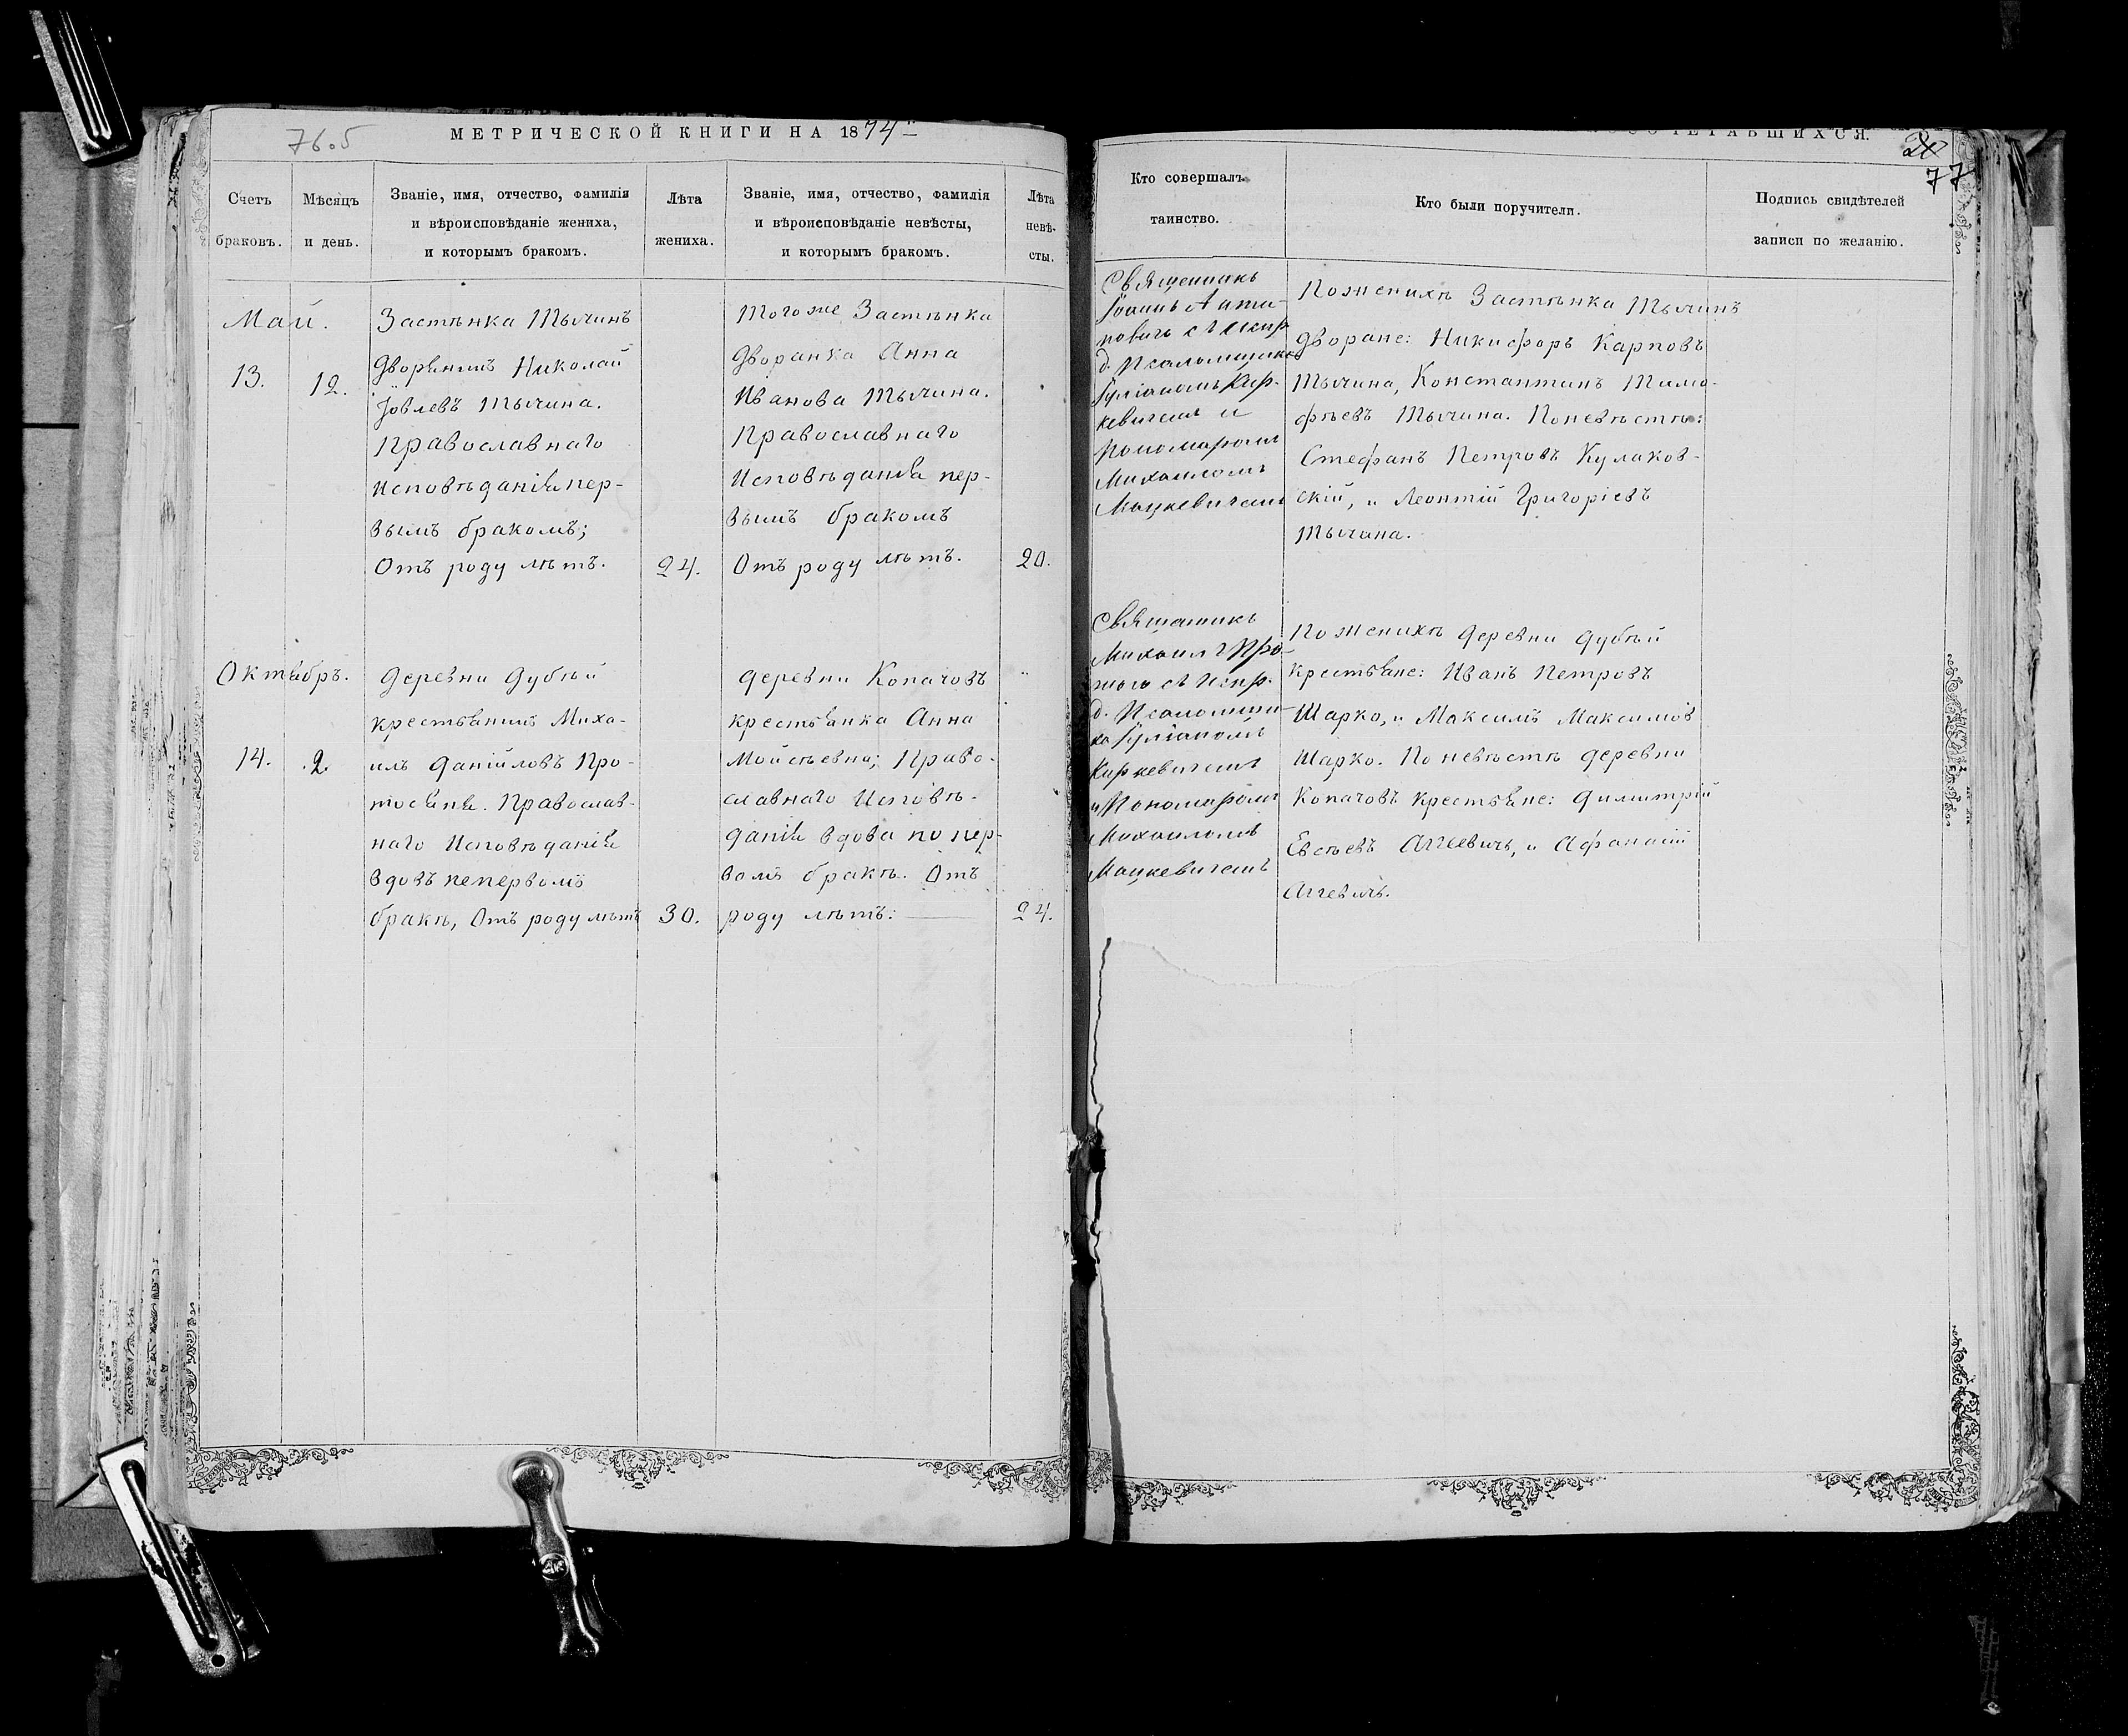 76.5
МЕТРИЧЕСКОЙ КНИГИ НА 1874
Счетъ
браковъ.
Мѣсяцъ
и день.
Званіе, имя, отчество, фамилія
и вѣроисповѣданіе жениха,
и которымъ бракомъ.
Лѣта
жениха.
Званіе, имя, отчество, фамилія
и вѣроисповѣданіе невѣсты,
и которымъ бракомъ.
Лѣта
невѣ-
сты.
Май.
13.
12.
Застѣнка Тычинъ
дворянинъ Николай
Іовлевъ Тычина.
Православнаго
Исповѣданія пер-
вымъ бракомъ;
Отъ роду лѣтъ.
24.
Того же Застѣнка
дворянка Анна
Иванова Тычина.
Православнаго
Исповѣданія пер-
вымъ бракомъ
Отъ роду лѣтъ.
20.
Октябръ.
14.
2.
деревни Дубѣй
крестьянинъ Миха-
илъ Даніиловъ Про-
. Православ-
наго Исповѣданія
вдовъ поперволѣ
бракѣ, Отъ роду лѣтъ
30.
деревни Копачовъ
крестьянка Анна
Мойсѣевна; Право-
славнаго Исповѣ-
данія вдова по пер-
вомъ бракѣ. Отъ
роду лѣтъ:
24.
СОЧЕТАВШИХСЯ.
77
Кто совершалъ
таинство.
Кто были поручители.
Подпись свидѣтелей
записи по желанію.
Священникъ
Іоаннъ
съ испр
д. Псаломщика
Іуліаномъ Кир-
кевичемъ и
Пономаремъ
Михаиломъ
Мацкевичемъ
По женихѣ Застѣнка Тычинъ
дворяне: Никифоръ Карповъ
Тычина, Константинъ Тимо-
фѣевъ Тычина. По невѣстѣ:
Стефанъ Петровъ Кулаков-
скій, и Леонтій Григоріевъ
Тычина.
Священникъ
Михаилъ
съ испр.
д. Псаломщи-
ка Іуліаномъ
Киркевичемъ
и Пономаремъ
Михаиломъ
Мацкевичемъ
По женихѣ деревни Дубѣй
крестьяне: Иванъ Петровъ
Шарко, и Максимъ Максимов
Шарко. По невѣстѣ деревни
Копачовъ крестьяне: Димитрій
Евсѣевъ Агіевичъ, и Афанасій
Агіевичъ.